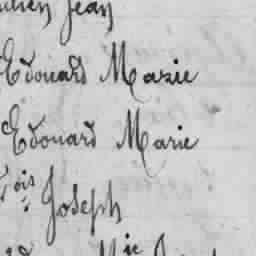 Jean
Edouard Marie
Edouard Marie
ois Joseph